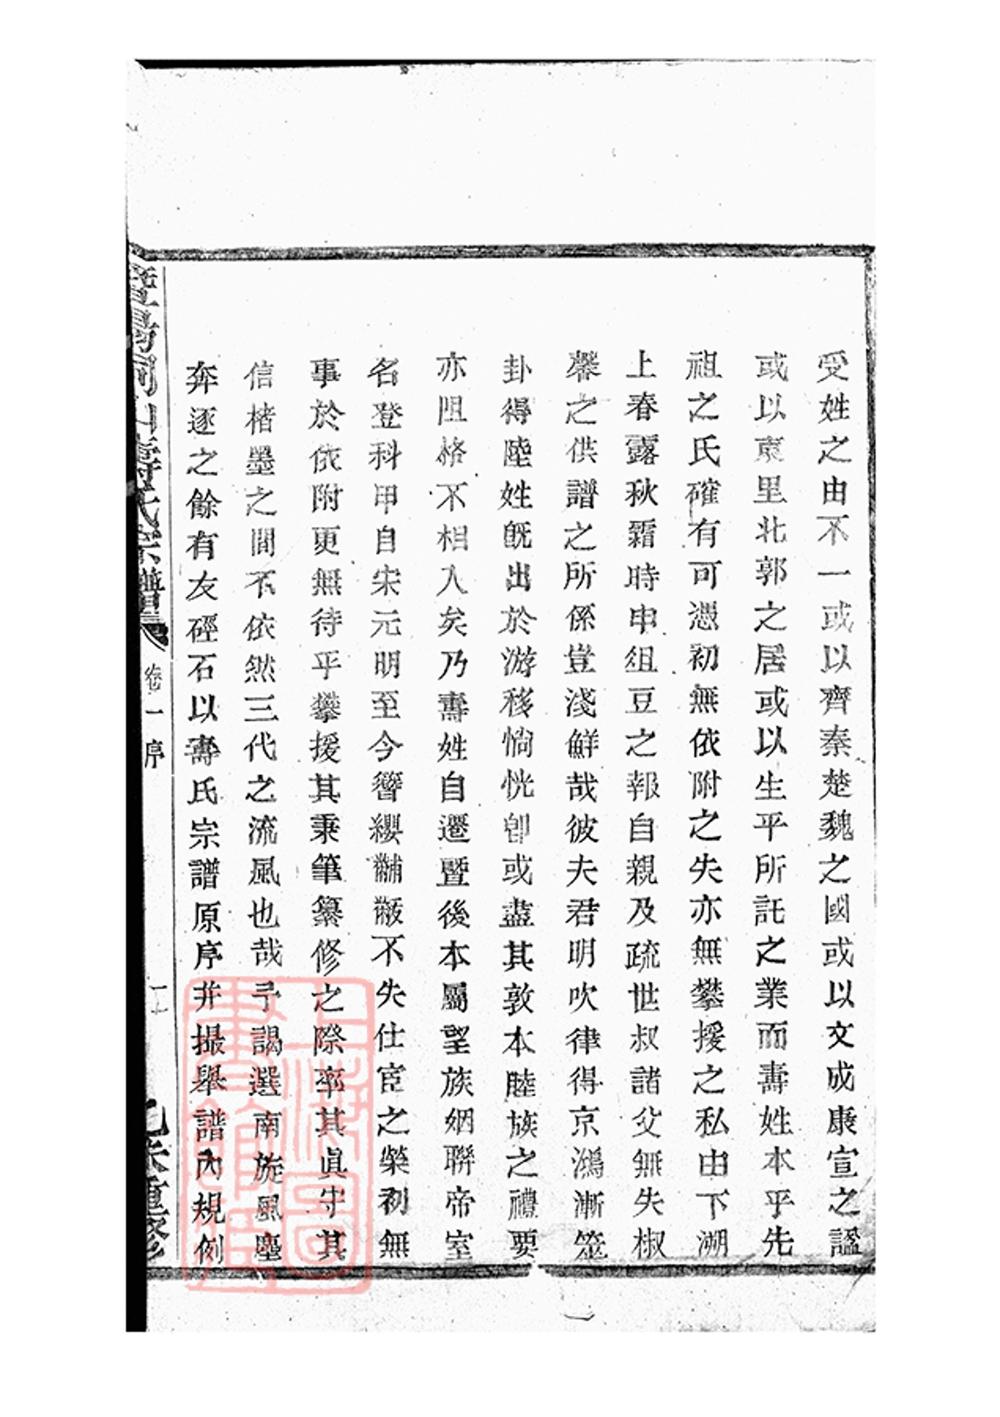 受姓之由不一或以齊秦楚魏之國或以文成康宣之謚
或以東里北郭之居或以生平所託之業而壽姓本乎先
祖之氏確有可憑初無依附之失亦無攀援之私由下溯
上春露秋霜時申俎豆之報自親及疏世叔諸父無失椒
馨之供譜之所係豈淺鮮哉彼夫君明吹律得京鴻漸筮
卦得陸姓旣出於游移惝恍卽或盡其敦本睦族之禮要
亦阻格不相入矣乃壽姓自遷暨後本屬望族姻聯帝室
名登科甲自宋元明至今簪纓黼黻不失仕宦之榮初無
事於依附更無待乎攀援其秉筆纂修之際率其眞守其
信楮墨之間不依然三代之流風也哉予謁選南旋風塵
奔逐之餘有友硜石以壽氏宗譜原序并撮舉譜內規例
暨陽同山壽氏宗譜 卷一 序 己未重修
上海圖書館藏